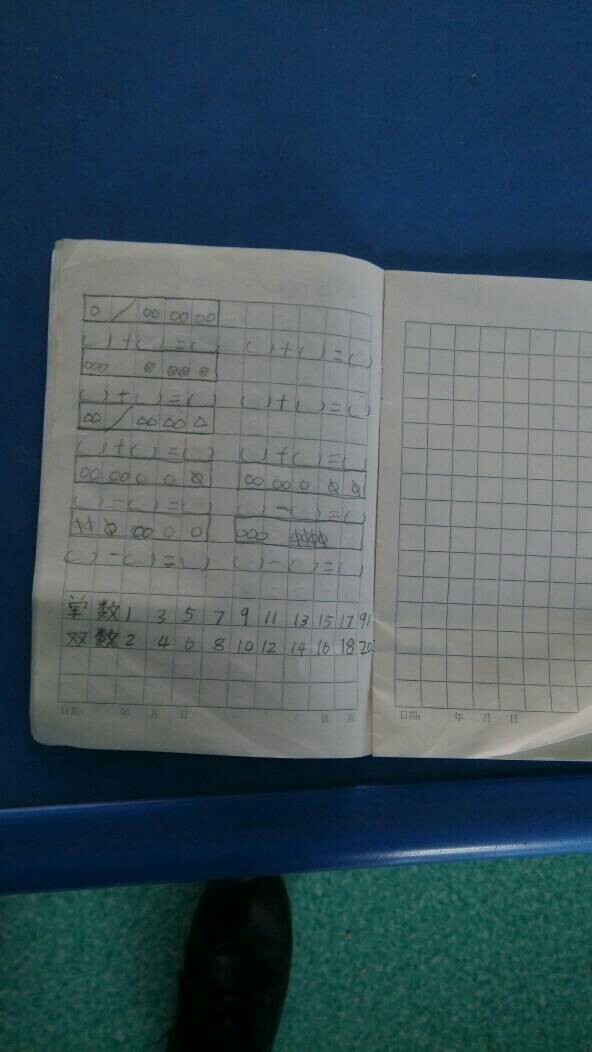 ( ) + ( ) = ( ) ( ) + ( ) = ( )
( ) + ( ) = ( ) ( ) + ( ) = ( )
( ) + ( ) = ( ) ( ) + ( ) = ( )
( ) - ( ) = ( ) ( ) - ( ) = ( )
( ) - ( ) = ( ) ( ) - ( ) = ( )
单数 1 3 5 7 9 11 13 15 17 91
双数 2 4 6 8 10 12 14 16 18 20
日期: 年 月 日 第 页
日期: 年 月 日